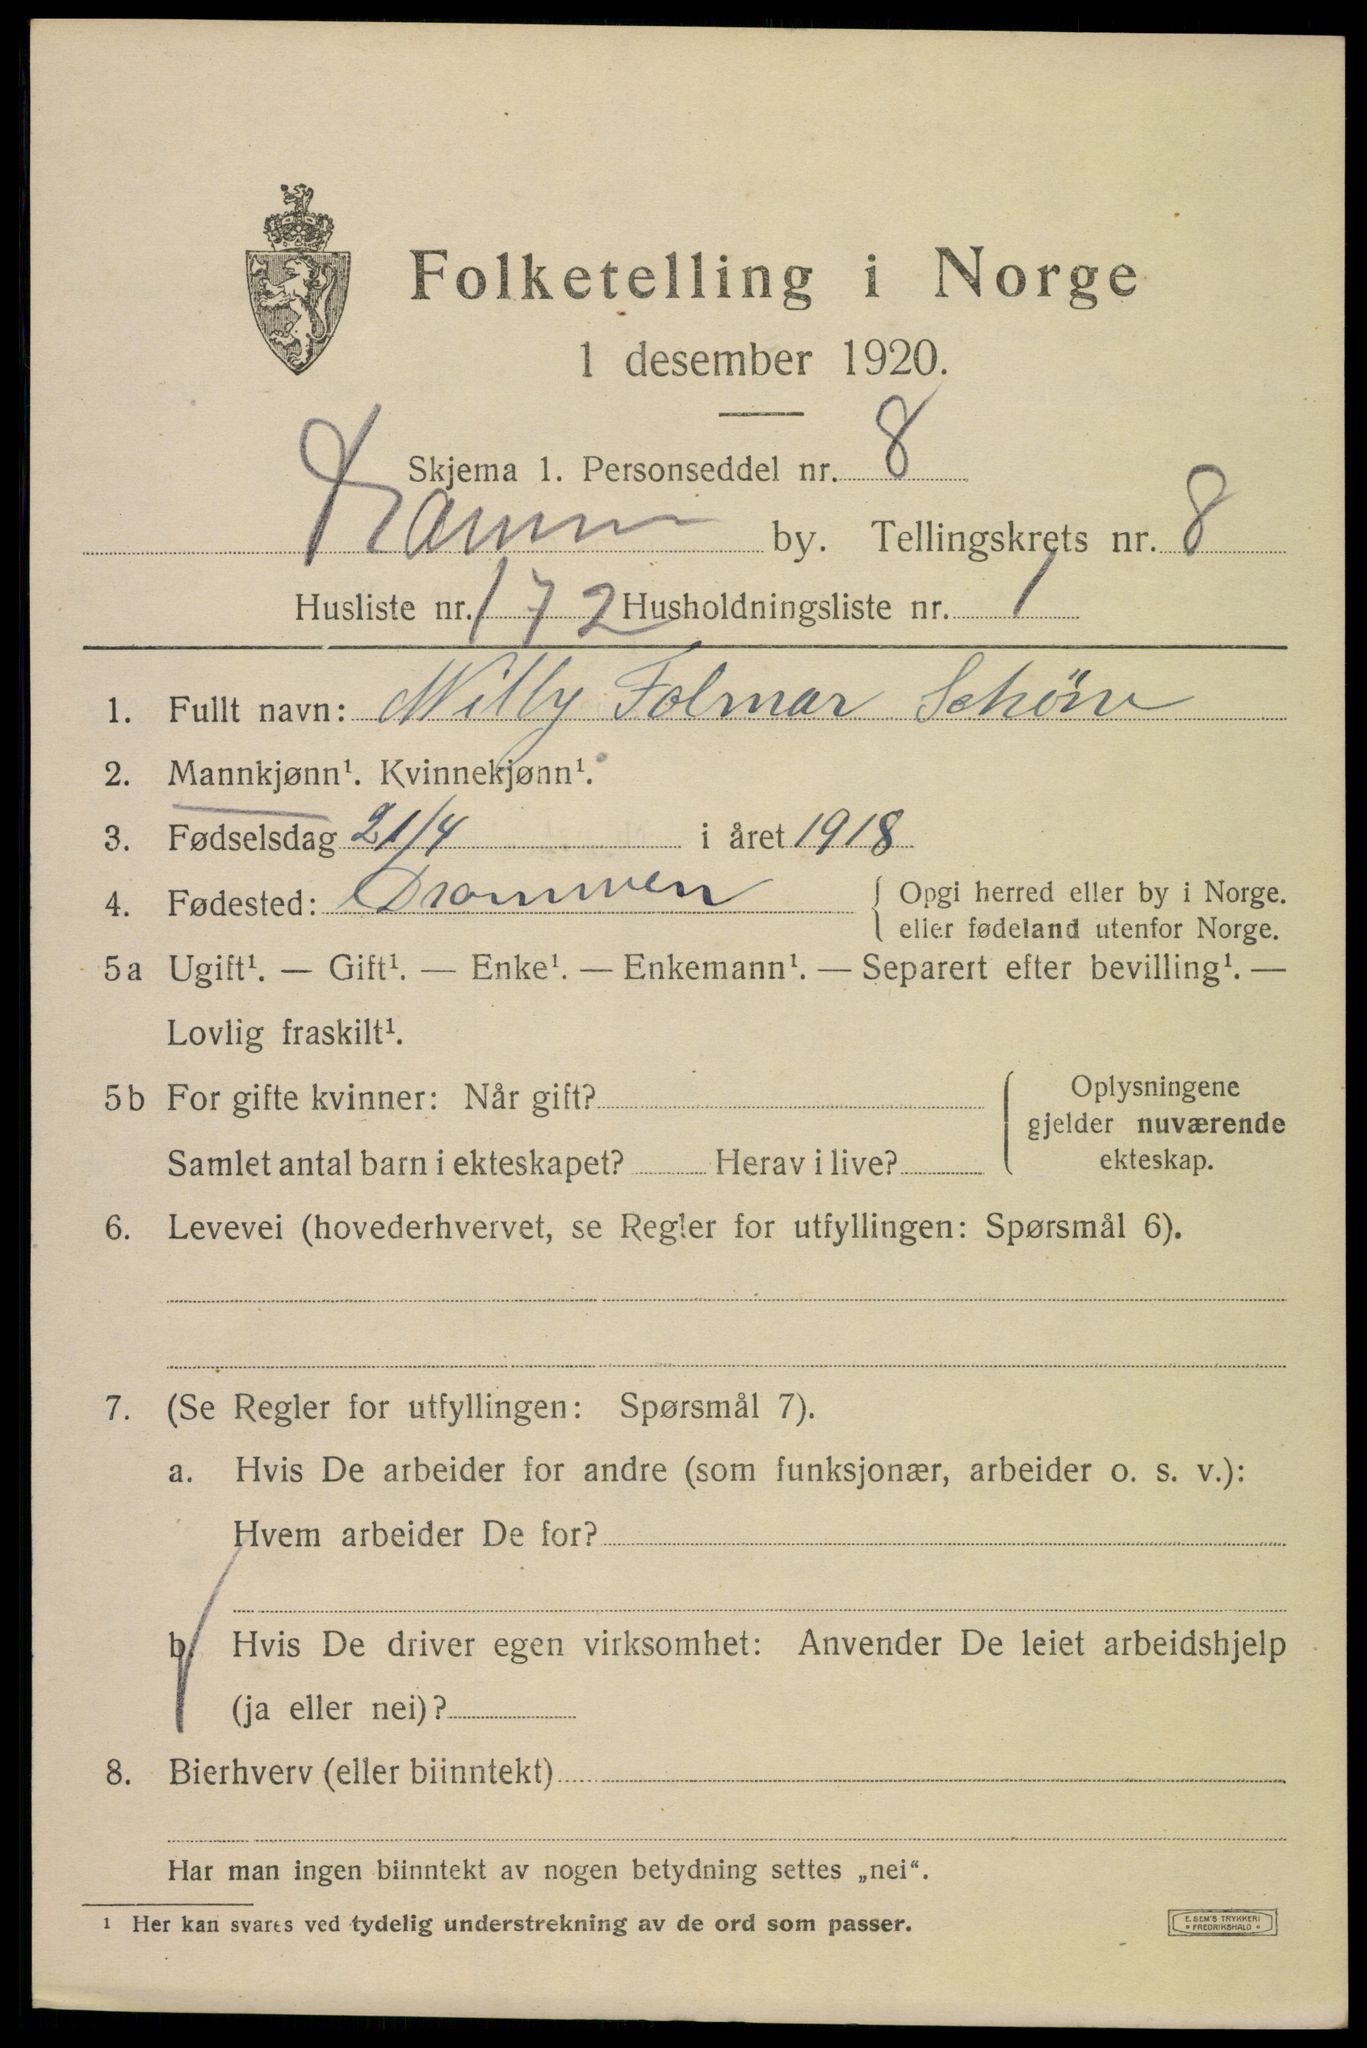 Folketelling i Norge
1 desember 1920.
Skjema 1. Personseddel nr. 8
by. Tellingskrets nr. 8
Husliste nr. 172 Husholdningsliste nr. 1
1. Fullt navn: Willy Folmar
2. Mannkjønn¹. Kvinnekjønn¹.
3. Fødselsdag 21/4 i året 1918
4. Fødested: Drammen
Opgi herred eller by i Norge.
eller fødeland utenfor Norge.
5a Ugift¹. — Gift¹. — Enke¹. — Enkemann¹. — Separert efter bevilling¹. —
Lovlig fraskilt¹.
5b For gifte kvinner: Når gift?
Samlet antal barn i ekteskapet? Herav i live?
Oplysningene
gjelder nuværende
ekteskap.
6. Levevei (hovederhvervet, se Regler for utfyllingen: Spørsmål 6).
7. (Se Regler for utfyllingen: Spørsmål 7).
a. Hvis De arbeider for andre (som funksjonær, arbeider o. s. v.):
Hvem arbeider De for?
b. Hvis De driver egen virksomhet: Anvender De leiet arbeidshjelp
(ja eller nei)?
8. Bierhverv (eller biinntekt)
Har man ingen biinntekt av nogen betydning settes „nei“.
¹ Her kan svares ved tydelig understrekning av de ord som passer.
E. SEM'S TRYKKERI
• FREDRIKSHALD •